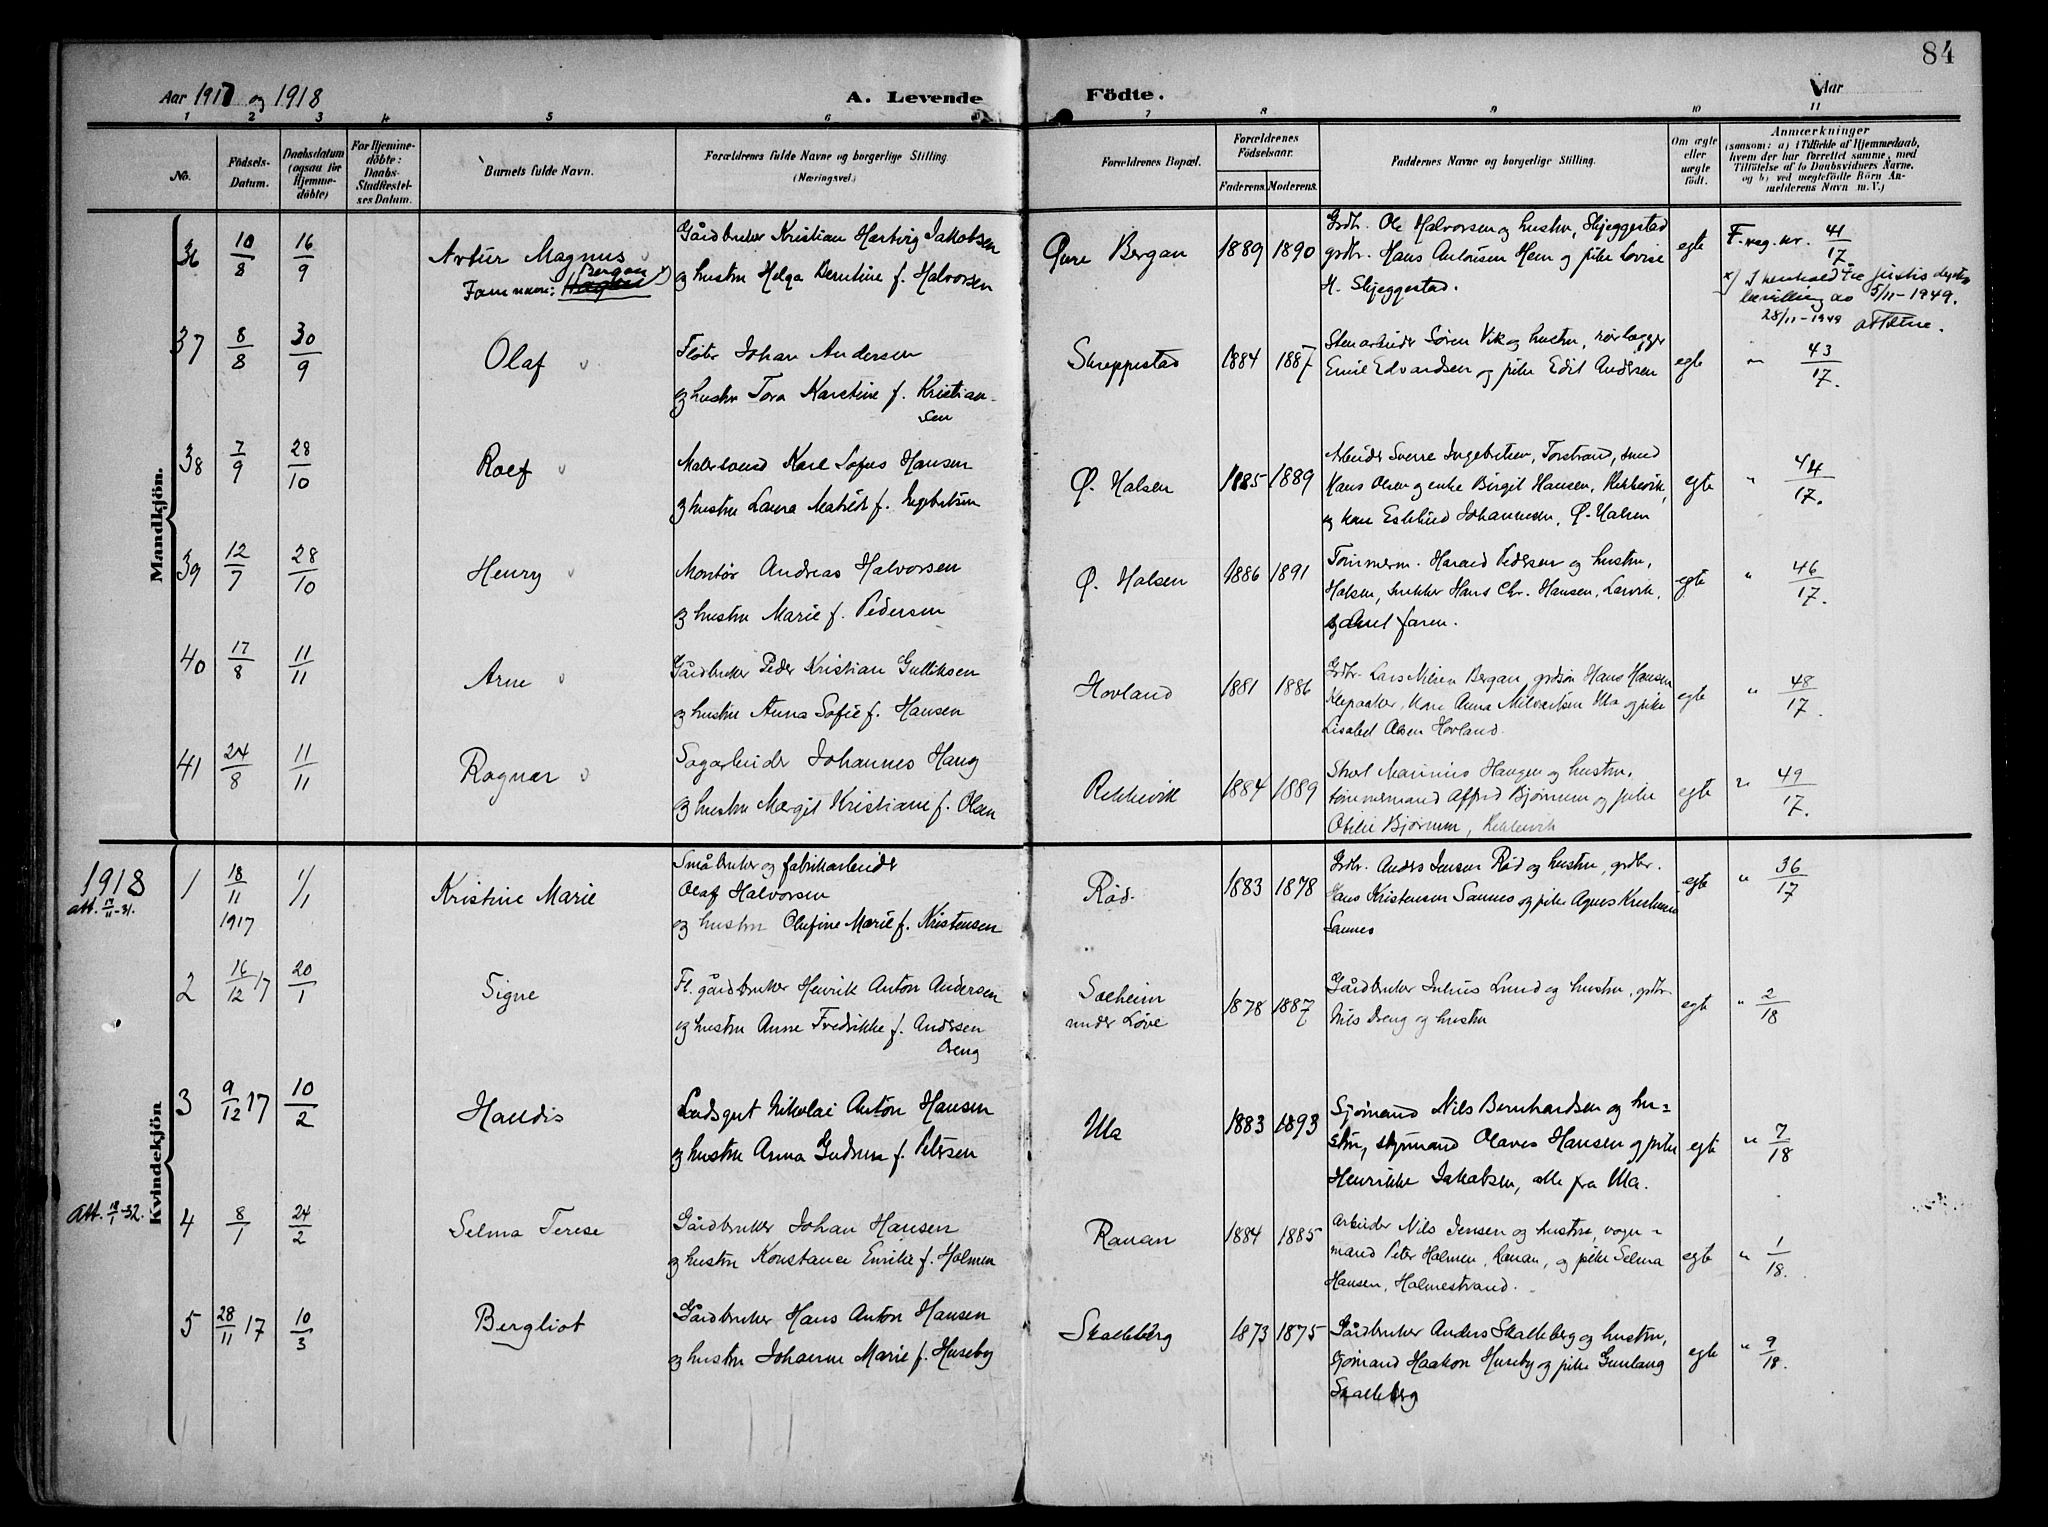 84
Aar 1917 og 1918
A. Levende Födte.
Aar
1 2 3 4 5 6 7 8 9 10 11
No.
Födsels-Datum.
Daabsdatum (ogsaa for Hjemme-döbte)
For Hjemme-döbte: Daabs-Stadfæstel-ses Datum.
Barnets fulde Navn.
Forældrenes fulde Navne og borgerlige Stilling. (Næringsvei.)
Forældrenes Bopæl.
Forældrenes Födselsaar.
Faderens. Moderens.
Faddernes Navne og borgerlige Stilling.
Om ægte eller uægte födt.
Anmærkninger
(saasom: a) i Tilfælde af Hjemmedaab, hvem der har forrettet samme, med Tilföielse af to Daabsvidners Navne, og b) ved uægtefödte Börn Anmelderens Navn m. V.)
Mandkjön.
36 10/8 16/9 Artur Magnus Gårdbruker Kristian Hartvig Jakobsen Øvre Bergan 1889 1890 Grdbr. Ole Halvorsen og hustru, Skjeggestad egte F. reg. nr. 41/17.
Famnavn: Bergan x) og hustru Helga Berntine f. Halvorsen grdbr. Hans Antonsen Hem og pike Lovise
H. Skjeggestad.
x) I henhold til justisdepts
bevilling av 5/11-1949.
28/11-1949
37 8/8 30/9 Olaf Fløter Johan Andersen Skreppestad 1884 1887 Stenarbeider Søren Vik og hustru, rørlægger egte " 43/17.
og hustru Tora Karetine f. Kristian-
sen
Emil Edvardsen og pike Edit Andersen
38 7/9 28/10 Rolf Malersvend Karl Sofus Hansen Ø. Halsen 1885 1889 Arbeider Sverre Ingebretsen, Torstrand, smed egte " 44/17.
og hustru Laura Matilde f. Ingebretsen Hans Olsen og enke Birgit Hansen, Rekkevik,
og kone Johannesen, Ø. Halsen
39 12/7 28/10 Henry Montør Andreas Halvorsen Ø. Halsen 1886 1891 Tømmerm. Harald Pedersen og hustru, egte " 46/17.
og hustru Marie f. Pedersen Halsen, snekker Hans Chr. Hansen, Larvik,
faren.
40 17/8 11/11 Arne Gårdbruker Peder Kristian Gulliksen Hovland 1881 1886 Grdbr. Lars Bergan, grdsøn Hans Hansen egte " 48/17.
og hustru Anna Sofie f. Hansen Klepaaker, kone Anna Ula og pike
Lisabet Olsen Hovland.
41 24/8 11/11 Ragnar Sagarbeider Johannes Haug Rekkevik 1884 1889 Marinius Haugen og hustru, egte " 49/17.
og hustru Margit Kristiane f. Olsen tømmermand Alfred Bjørnum og pike
Bjørnum, Rekkevik
Kvindekjön
1918
att. 17/11-31.
1 18/11 1917 1/1 Kristine Marie Småbruker og fabrikarbeider Rød. 1883 1878 Grdbr. Anders Jensen Rød og hustru, grdbr. egte " 36/17
Olaf Halvorsen Hans Kristensen Sannes og pike Agnes Kristensen
og hustru Olufine Marie f. Kristensen Sannes
2 16/12 17 20/1 Signe Fl. gårdbruker Henrik Anton Andersen Solheim 1878 1887 Gårdbruker Julius Lund og hustru, grdbr. egte " 2/18
og hustru Anne Fredrikke f. Andersen under Løve Nils Øreng og hustru
3 9/12 17 10/2 Haldis Ladsgut Nikolai Anton Hansen Ula 1883 1893 Sjømand Nils Bernhardsen og hu- egte " 7/18
og hustru Anna Gudrun f. Petersen stru, styrmand Olaves Hansen og pike
Henrikke Jakobsen, alle fra Ula.
att. 18/1-32.
4 8/1 24/2 Selma Terese Gårdbruker Johan Hansen Ranan 1884 1885 Arbeider Nils Jensen og hustru, vogn- egte " 1/18.
og hustru Konstance Emilie f. Holmen mand Peter Holmen, Ranan, og pike Selma
Hansen, Holmestrand.
5 28/11 17 10/3 Bergliot Gårdbruker Hans Anton Hansen Skalleberg 1873 1875 Gårdbruker Anders Skalleberg og hustru, egte " 9/18.
og hustru Johanne Marie f. Huseby sjømand Haakon Huseby og pike Gunlaug
Skalleberg